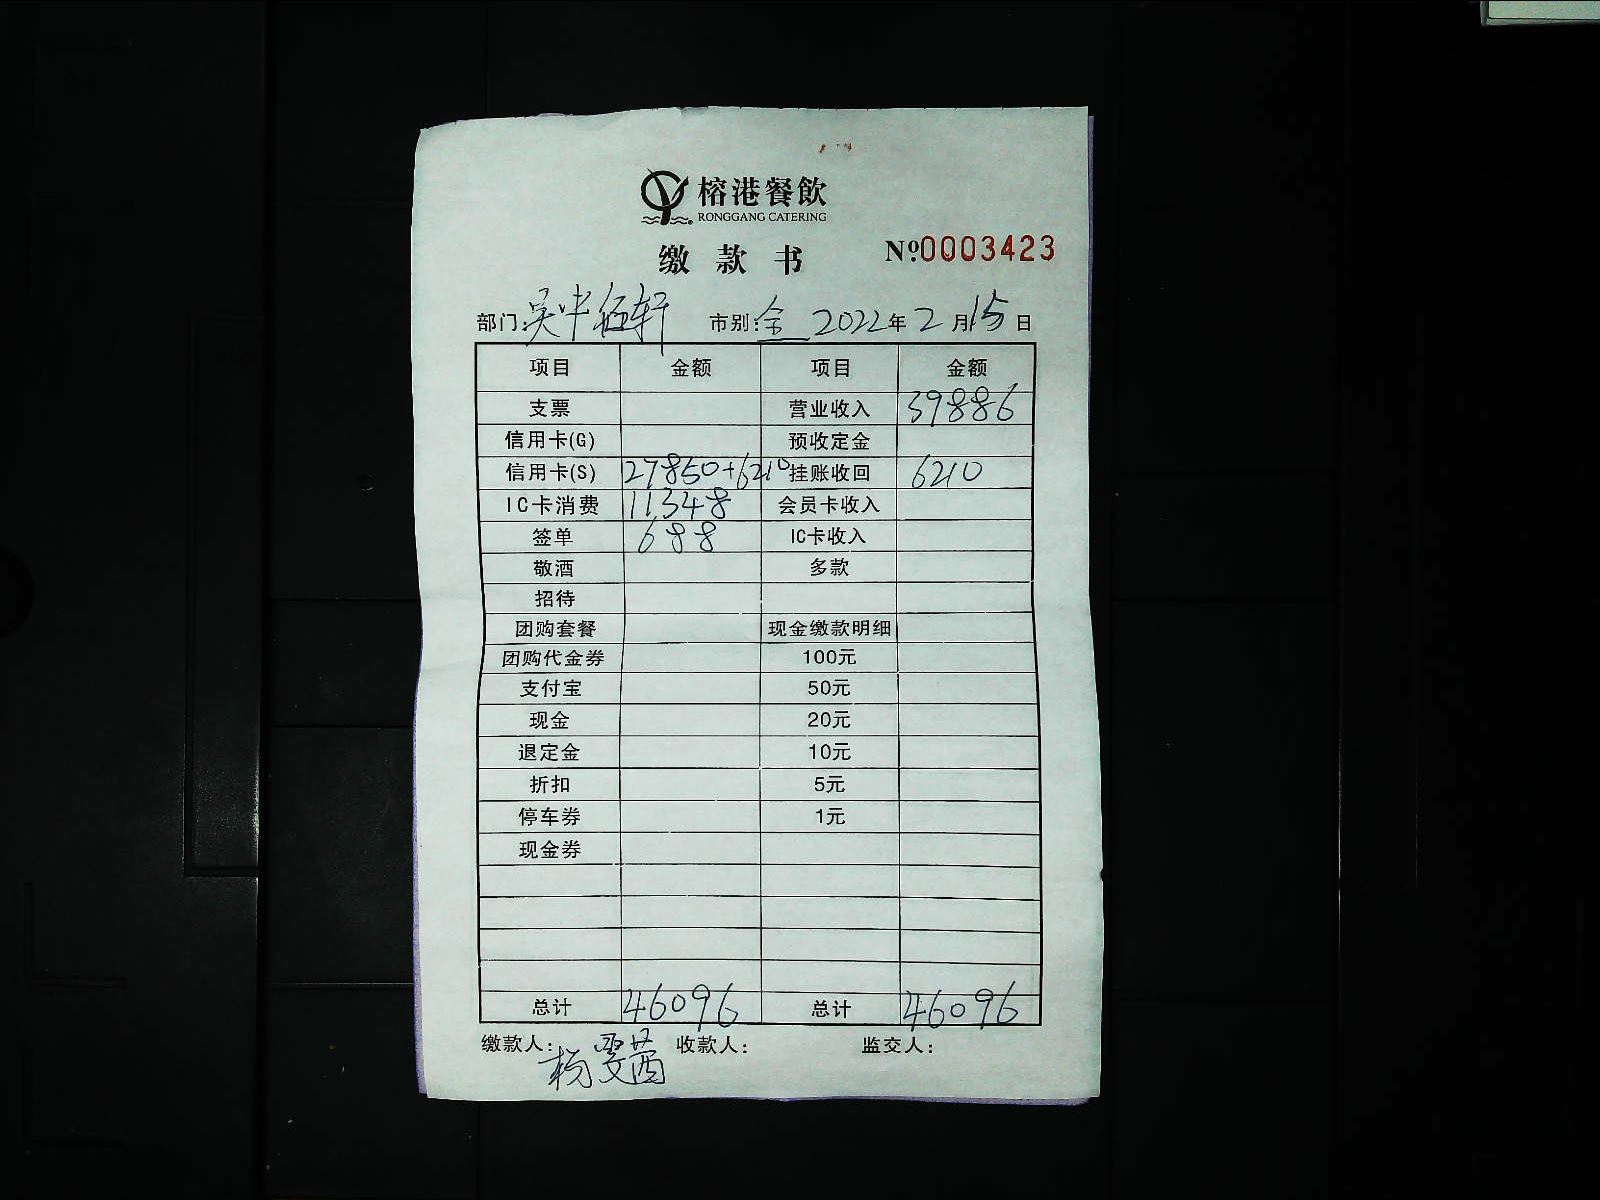 榕港餐飲
RONGGANG CATERING
缴款书 №0003423
部门: 市别:全 2022年2月15日
项目 金额 项目 金额
支票 营业收入 39886
信用卡(G) 预收定金
信用卡(S) 27850+6210 挂账收回 6210
IC卡消费 11348 会员卡收入
签单 688 IC卡收入
敬酒 多款
招待
团购套餐 现金缴款明细
团购代金券 100元
支付宝 50元
现金 20元
退定金 10元
折扣 5元
停车券 1元
现金券
总计 46096 总计 46096
缴款人:杨雯茜 收款人: 监交人: